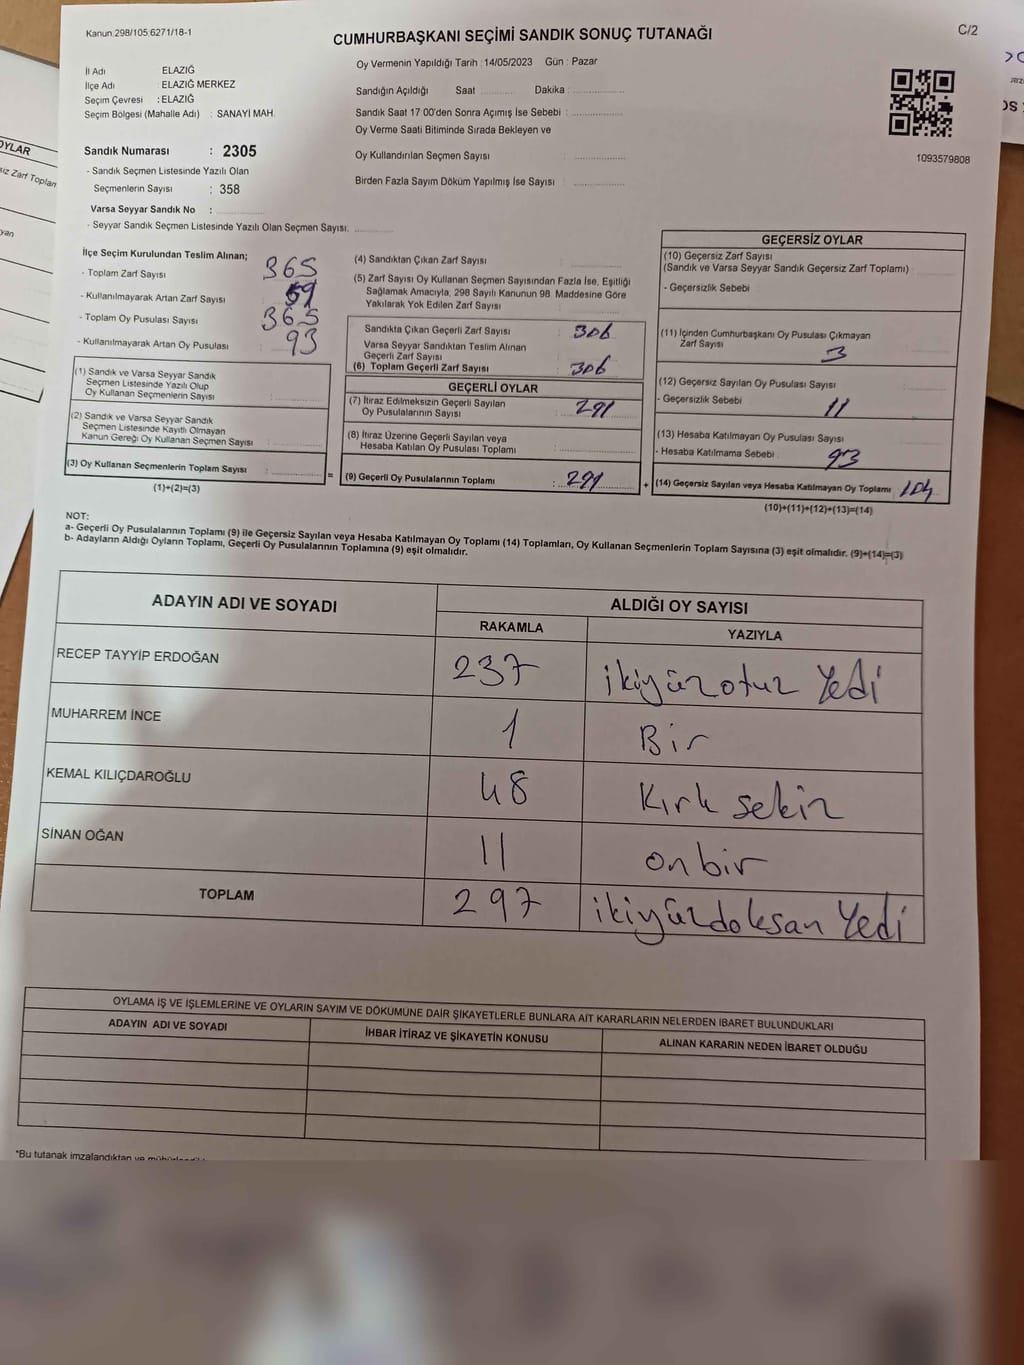 Kanun.298/105.6271/18-1
CUMHURBAŞKANI SEÇİMİ SANDIK SONUÇ TUTANAĞI
C/2
İl Adı ELAZIĞ
İlçe Adı : ELAZIĞ MERKEZ
Seçim Çevresi : ELAZIĞ
Seçim Bölgesi (Mahalle Adı) : SANAYİ MAH.
Oy Vermenin Yapıldığı Tarih : 14/05/2023 Gün : Pazar
Sandığın Açıldığı Saat Dakika :
Sandık Saat 17 00'den Sonra Açımış İse Sebebi :
Oy Verme Saati Bitiminde Sırada Bekleyen ve
Oy Kullandırılan Seçmen Sayısı :
Birden Fazla Sayım Döküm Yapılmış İse Sayısı :
1093579808
Sandık Numarası : 2305
- Sandık Seçmen Listesinde Yazılı Olan
Seçmenlerin Sayısı : 358
Varsa Seyyar Sandık No :
- Seyyar Sandık Seçmen Listesinde Yazılı Olan Seçmen Sayısı.
İlçe Seçim Kurulundan Teslim Alınan;
- Toplam Zarf Sayısı 365
- Kullanılmayarak Artan Zarf Sayısı 59
- Toplam Oy Pusulası Sayısı 365
- Kullanılmayarak Artan Oy Pusulası 93
(1) Sandık ve Varsa Seyyar Sandık
Seçmen Listesinde Yazılı Olup
Oy Kullanan Seçmenlerin Sayısı :
(2) Sandık ve Varsa Seyyar Sandık
Seçmen Listesinde Kayıtlı Olmayan
Kanun Gereği Oy Kullanan Seçmen Sayısı :
(3) Oy Kullanan Seçmenlerin Toplam Sayısı : =
(1)+(2)=(3)
(4) Sandıktan Çıkan Zarf Sayısı :
(5) Zarf Sayısı Oy Kullanan Seçmen Sayısından Fazla İse, Eşitliği
Sağlamak Amacıyla, 298 Sayılı Kanunun 98. Maddesine Göre
Yakılarak Yok Edilen Zarf Sayısı :
Sandıkta Çıkan Geçerli Zarf Sayısı : 306
Varsa Seyyar Sandıktan Teslim Alınan
Geçerli Zarf Sayısı :
(6) Toplam Geçerli Zarf Sayısı : 306
GEÇERLİ OYLAR
(7) İtiraz Edilmeksizin Geçerli Sayılan
Oy Pusulalarının Sayısı : 291
(8) İtiraz Üzerine Geçerli Sayılan veya
Hesaba Katılan Oy Pusulası Toplamı :
(9) Geçerli Oy Pusulalarının Toplamı : 291 +
GEÇERSİZ OYLAR
(10) Geçersiz Zarf Sayısı
(Sandık ve Varsa Seyyar Sandık Geçersiz Zarf Toplamı) :
- Geçersizlik Sebebi
(11) İçinden Cumhurbaşkanı Oy Pusulası Çıkmayan
Zarf Sayısı 3
(12) Geçersiz Sayılan Oy Pusulası Sayısı :
- Geçersizlik Sebebi 11
(13) Hesaba Katılmayan Oy Pusulası Sayısı
- Hesaba Katılmama Sebebi 93
(14) Geçersiz Sayılan veya Hesaba Katılmayan Oy Toplamı 104
(10)+(11)+(12)+(13)=(14)
NOT:
a- Geçerli Oy Pusulalarının Toplamı (9) ile Geçersiz Sayılan veya Hesaba Katılmayan Oy Toplamı (14) Toplamları, Oy Kullanan Seçmenlerin Toplam Sayısına (3) eşit olmalıdır. (9)+(14)=(3)
b- Adayların Aldığı Oyların Toplamı, Geçerli Oy Pusulalarının Toplamına (9) eşit olmalıdır.
ADAYIN ADI VE SOYADI ALDIĞI OY SAYISI
RAKAMLA YAZIYLA
RECEP TAYYİP ERDOĞAN 237 ikiyüzotuz Yedi
MUHARREM İNCE 1 Bir
KEMAL KILIÇDAROĞLU 48 Kırk sekiz
SİNAN OĞAN 11 onbir
TOPLAM 297 ikiyüzdoksan Yedi
OYLAMA İŞ VE İŞLEMLERİNE VE OYLARIN SAYIM VE DÖKÜMÜNE DAİR ŞİKAYETLERLE BUNLARA AİT KARARLARIN NELERDEN İBARET BULUNDUKLARI
ADAYIN ADI VE SOYADI İHBAR İTİRAZ VE ŞİKAYETİN KONUSU ALINAN KARARIN NEDEN İBARET OLDUĞU
*Bu tutanak imzalandıktan ve